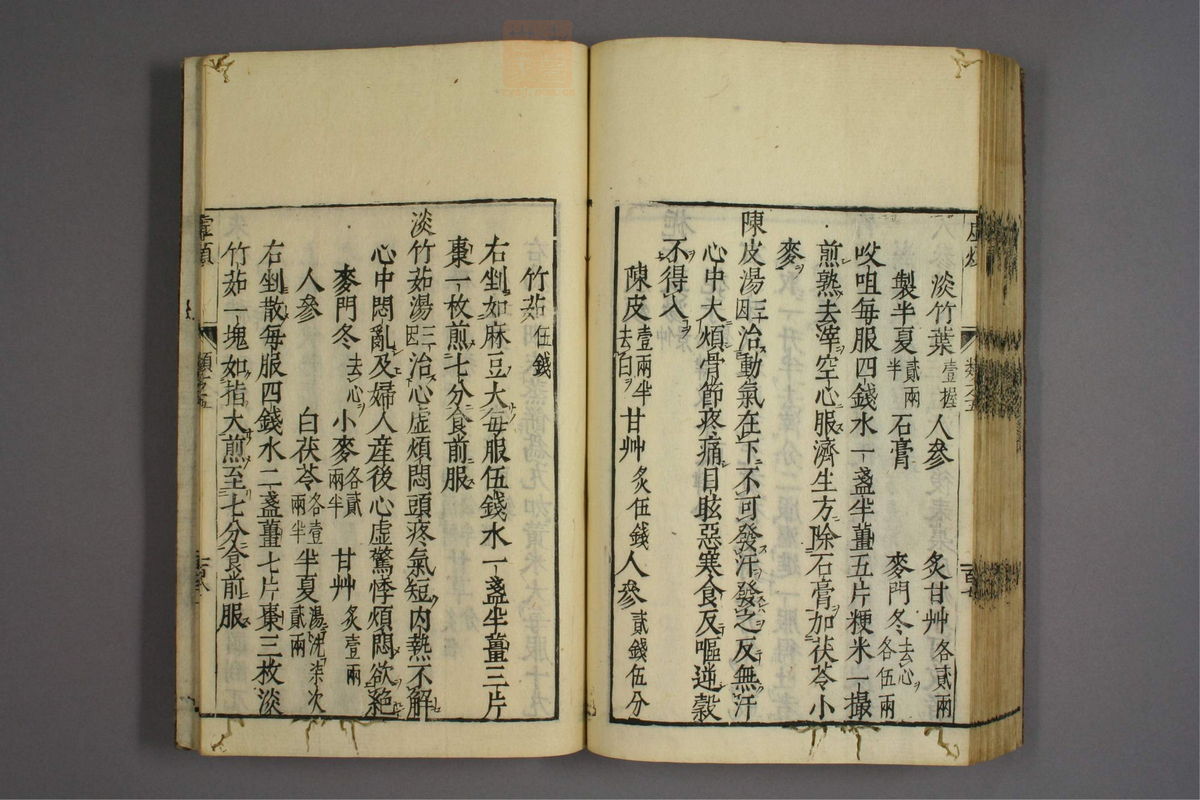 淡竹葉壹握 人參 炙甘艸各貳兩
製半夏貳兩半 石膏 麥門冬去心各伍兩
㕮咀每服四錢水一盞半薑五片粳米一撮
煎熟去滓空心服濟生方除石膏加茯苓小
麥
陳皮湯三因治動氣在下不可發汗發之反無汗
心中大煩骨節疼痛目眩惡寒食反嘔逆穀
不得入
陳皮壹兩半去白 甘艸炙伍錢 人參貳錢伍分
竹茹伍錢
右剉如麻豆大每服伍錢水一盞半薑三片
棗一枚煎七分食前服
淡竹茹湯三因治心虛煩悶頭疼氣短內熱不解
心中悶亂及婦人産後心虛驚悸煩悶欲絕
麥門冬去心 小麥各貳兩半 甘艸炙壹兩
人參 白茯苓各壹兩半 半夏湯洗柒次貳兩
右剉散每服四錢水二盞薑七片棗三枚淡
竹茹一塊如指大煎至七分食前服